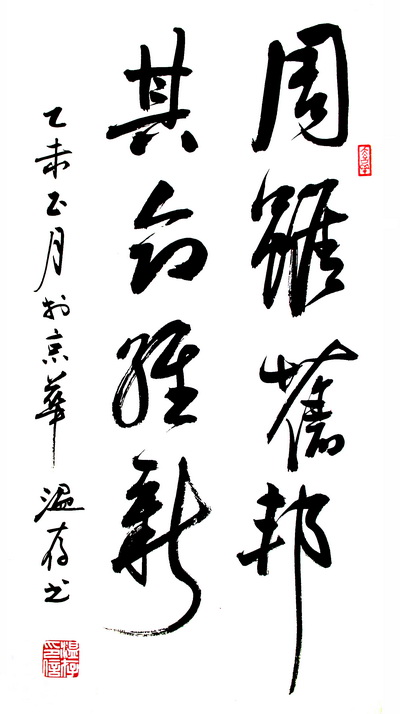 周雖舊邦
其命維新
乙未正月於京華 溫存書